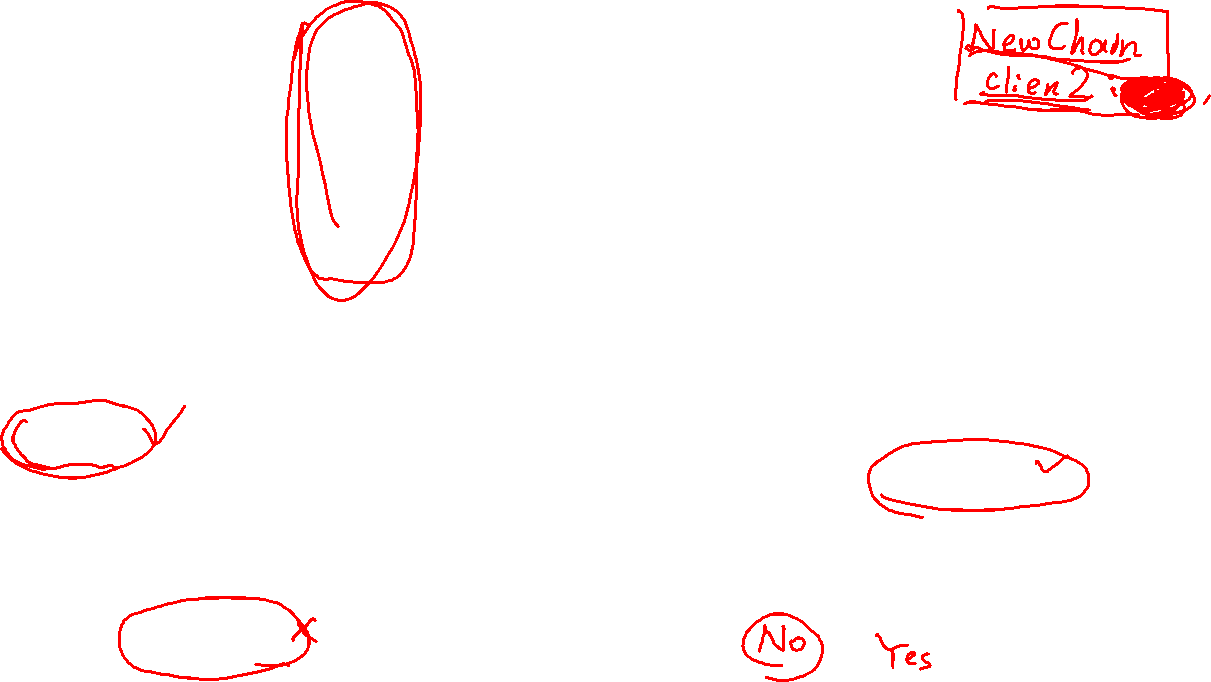 New Chain
clien2 :
No Yes